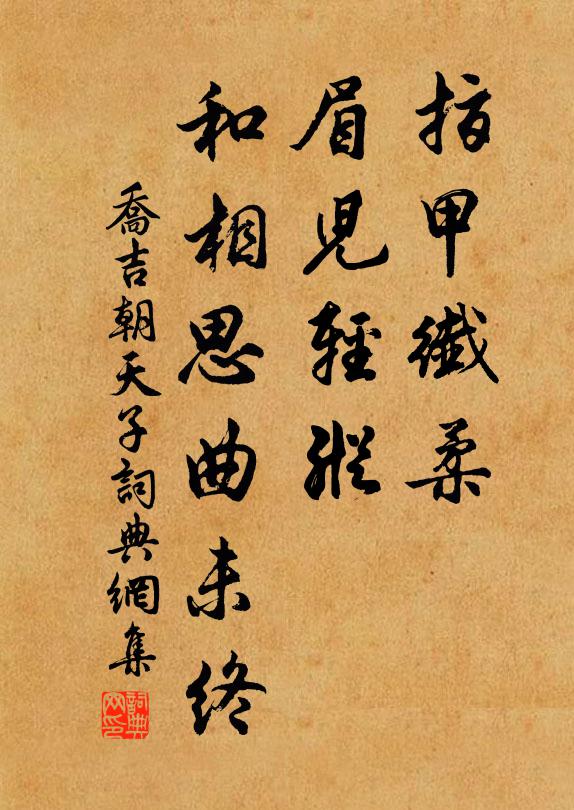 指甲纖柔
眉児輕縱
和相思曲未終
喬吉朝天子詞典網集
詞典
网印